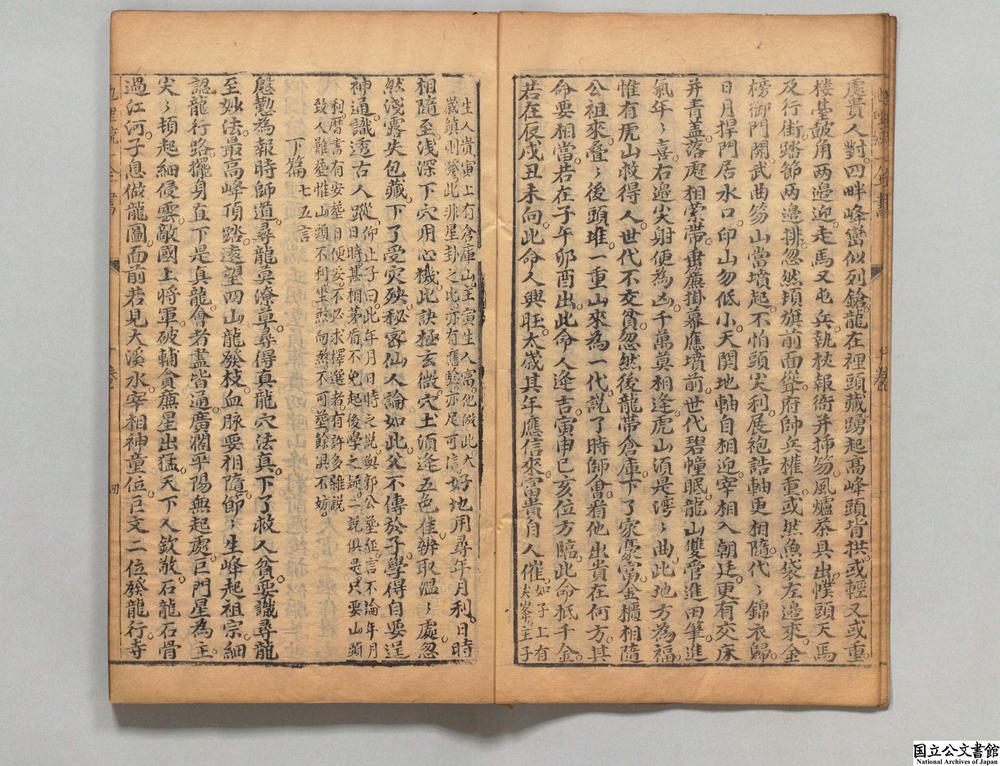 處貴人對四畔峰巒似列鎗龍在裡頭藏踴起高峰頭皆拱或輕又或重
樓䑓皷角兩邉迎走馬又屯兵執杖報衙并揷笏風爐茶具出幞頭天馬
及行街踏節兩邉排忽然頓旗前面聳府師兵權重或然魚袋左邉來金
榜御門開武曲笏山當墳起不怕頭尖利展袍誥軸更相隨代〻錦衣歸
日月捍門居水口印山勿低小天関地軸自相迎宰相入朝廷更有交床
并青盖落處相縈帶垂簾掛幕應墳前世代碧幢眠龍山雙管進田筆進
氣年〻喜右邉尖射便為凶千萬莫相逢虎山湏是灣〻曲此地方為福
惟有虎山救得人世代不交貧忽然後龍帶倉庫下了家豪富金櫃相隨
公祖來叠〻後頭堆一重山來為一代説了時師會看他出貴在何方其
命要相當若在子午卯酉出此命人逢吉寅申巳亥位方臨此命秪千金
若在辰戌丑未向此命人興旺太歲其年應信來富貴自人催如子上有尖峯主子
生人貴寅上有倉庫山主寅生人富他倣此大歲鎮則發此非星卦之此亦有應驗亦足可信好地用尋年月利日時
相隨至淺深下穴用心機此訣極玄微穴土湏逢五色催辦取温〻處忽
然淺露失包藏下了受灾殃秘客仙人論如此父不傳於子學得自要逞
神通識透古人蹤仰止子曰此年月日時之説與郭公葬經言不論年月日時甚相茅盾不免起後學之疑一説俱是只要山頭
利曆書有安葬日便妥不必求擇選者有許多雜説致人難葬惟山頭不利坐煞向煞不可葬餘俱不妨
下篇七五言
慇懃為報時師道尋龍莫僚草尋得真龍穴法真下了救人貧要識尋龍
至妙法最高峰頂踏遠望四山龍發枝血脉要相隨節〻生峰起祖宗細
認龍行路擺身直下是真龍會者盡皆通廣濶平陽無起處巨門星為主
尖〻頓起細侵雲敵國上將軍破輔貪㢘星出猛天下人欽敬石龍石骨
過江河子息做龍圖面前若見大溪水宰相神童位巨文二位發龍行寺
四
国立公文書館
National Archives of Japan